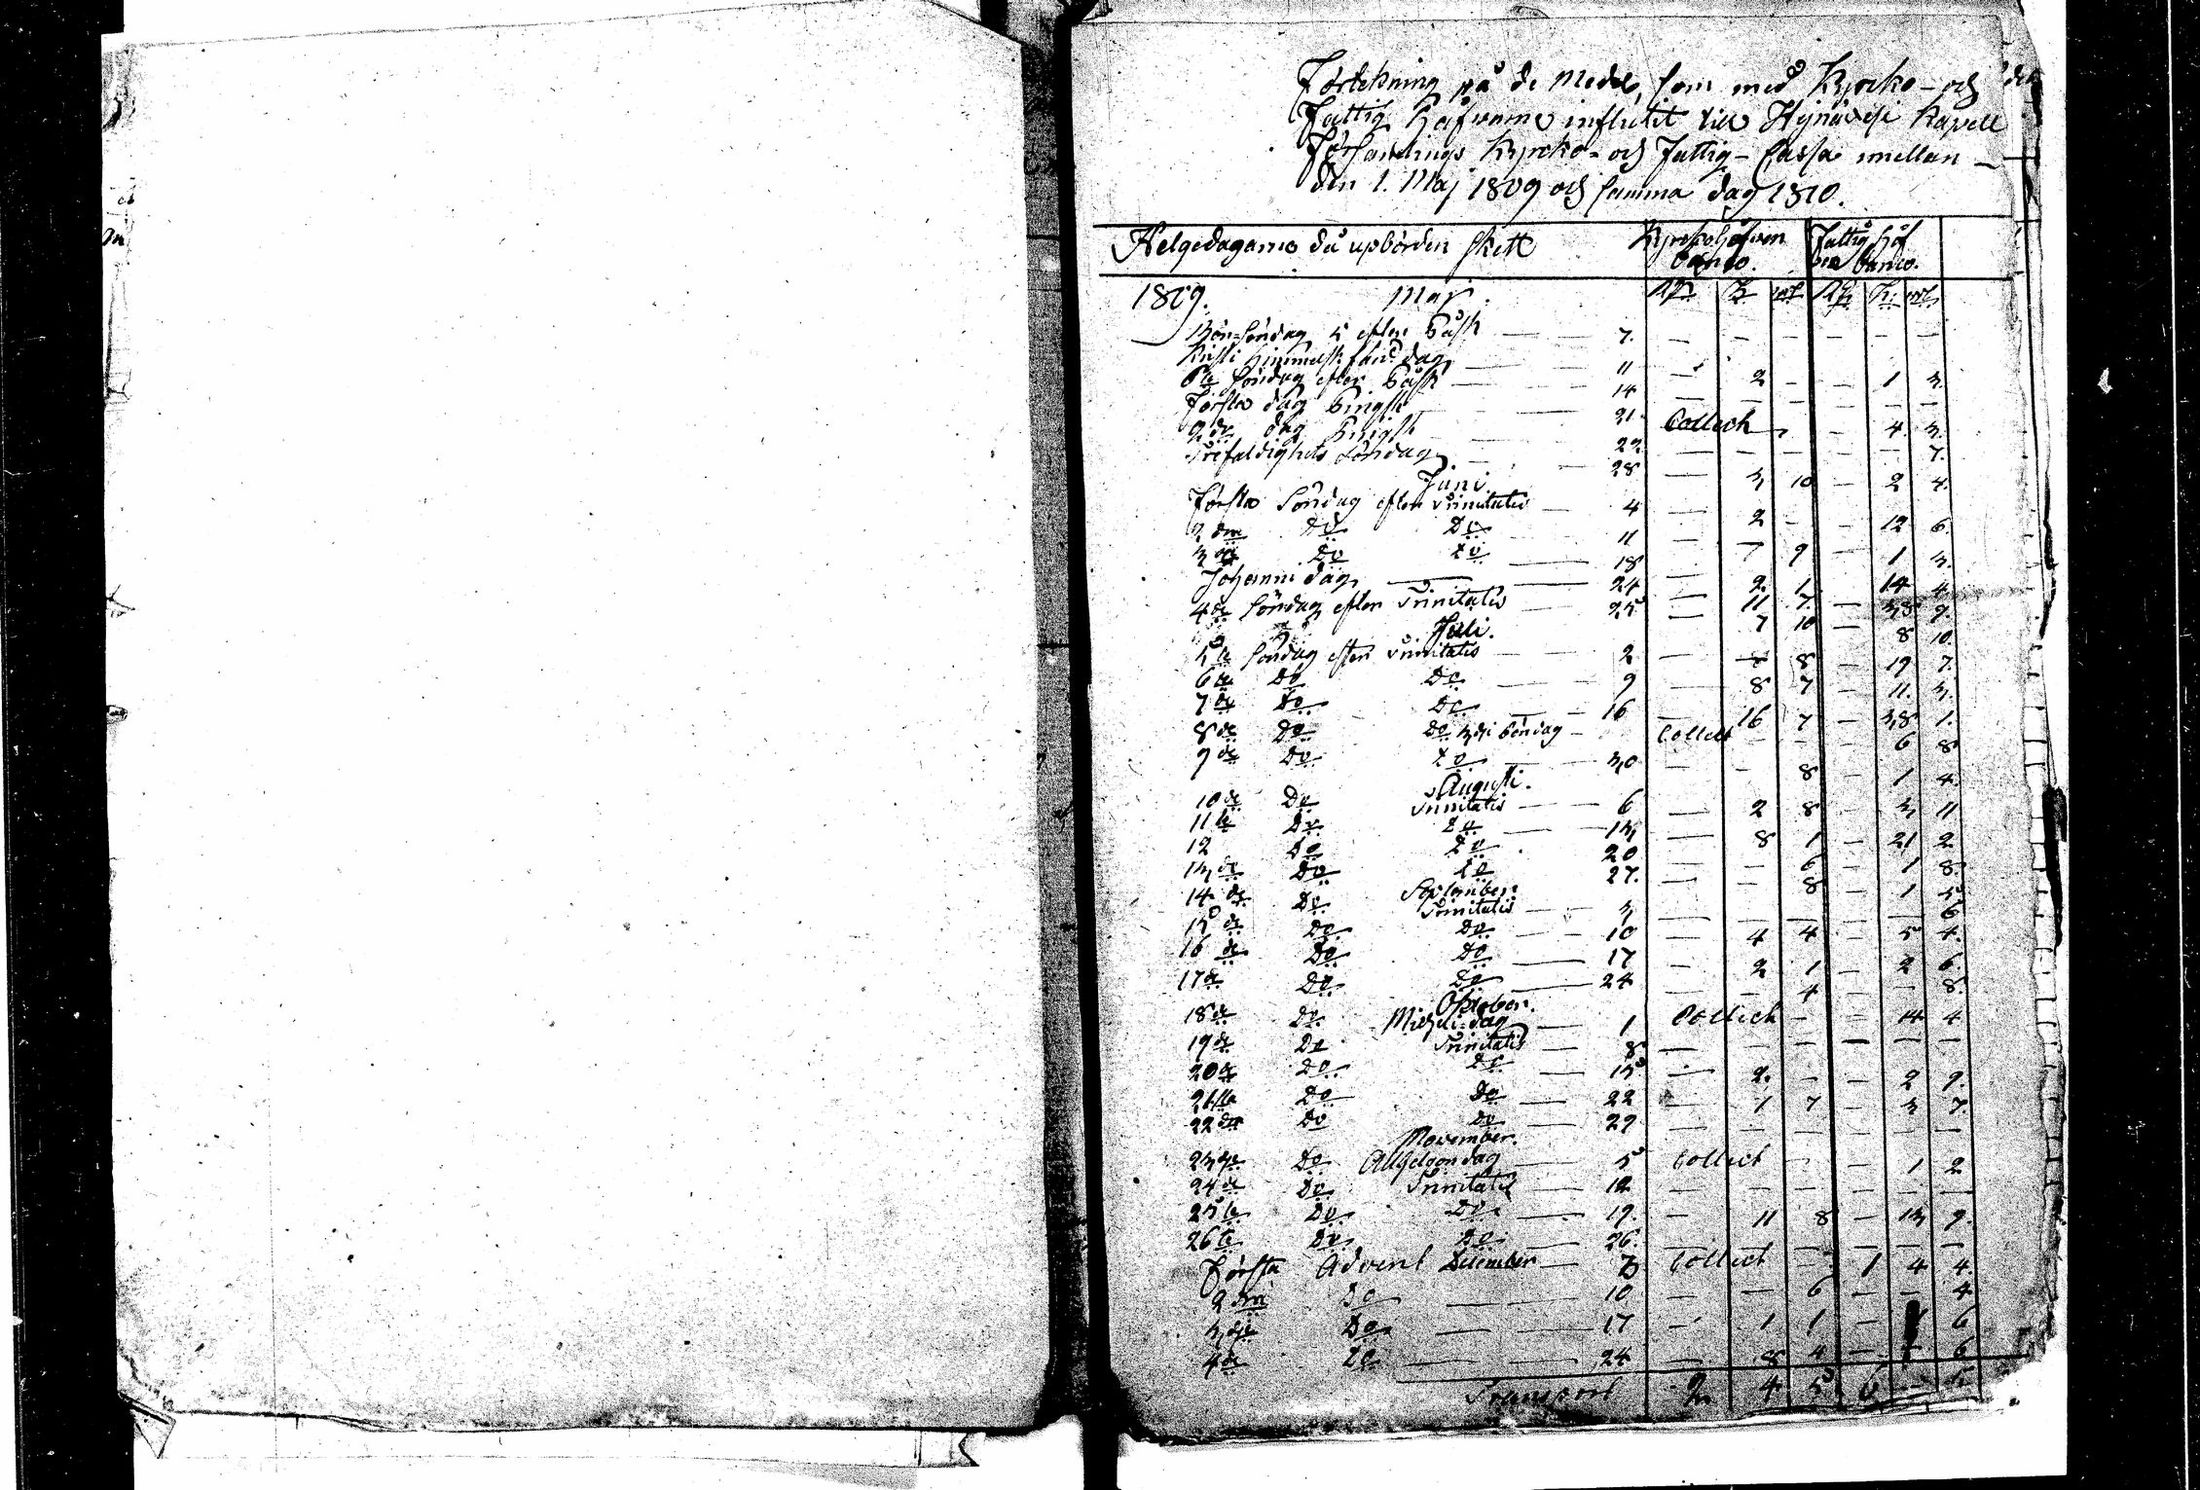 Förtekning på de Medel, som med Kyrcko- och
Fattig Håfvarne influtit till Hynäxi Kapell
Församlings Kyrcko- och Fattig-Cassa imellan
den 1. Maj 1809 och samma dag 1810.
Helgedagarne då upbörden skett Kyrckohåfven banco. Fattig håf banco.
1809. Maj.
Bönsöndag 5 efter Påsk — 7. — — — — — —
Kristi Himmelsfärds dag — 11 — 2 — — 1 3.
6te Söndag efter Påsk — 14 — — — — — —
Första dag Pingst — 21 Collect — — 4. 3.
2dre dag Pingst — 22 — — — — — 7.
Trefaldighets Söndag — 28 — 3 10 — 2 4.
Juni
Första Söndag efter Trinitatis — 4 — 2 — — 12 6.
2dra Do Do — 11 — 7 9 — 1 3.
3dje Do Do — 18 — 2 1 — 14 4.
Johanni dag — 24 — 11 7. — 38 9.
4de Söndag efter Trinitatis — 25 — 7 10 — 8 10.
Juli.
5te Söndag efter Trinitatis — 2 — — 8 — 19 7.
6te Do Do — 9 — 8 7 — 11. 3.
7de Do Do — 16 — 16 7 — 38 1.
8de Do Do 3dje Böndag — Collect — — 6 8
9de Do Do — 30 — — 8 — 1 4.
Augusti.
10de Do Trinitatis — 6 — 2 8 — 3 11
11te Do Do — 13 — 8 1 — 21 2
12 Do Do 20 — — 6 — 1 8.
13de Do Do 27. — — 8 — 1 5
September
14de Do Trinitatis — 3 — — — — — 6
15de Do Do — 10 — 4 4 — 5 4.
16de Do Do — 17 — 2 1 — 2 6.
17de Do Do — 24 — — 4 — — 8.
October.
18de Do Micheli-dag — 1 Collect — — 14 4
19de Do Trinitatis — 8 — — — — — —
20de Do Do — 15 — 2. — — 2 9.
21ste Do Do — 22 — 1 7 — 3 7.
22dra Do Do — 29 — — — — — —
November.
23dje Do Allhelgondag — 5 Collect — — 1 2
24de Do Trinitatis — 12 — — — — — —
25te Do Do — 19. — 11 8 — 13 9.
26te Do Do — 26. — — — — — —
Första Advent December — 3 Collect — 1 4 4.
2dra Do — 10 — — 6 — — 4
3dje Do — 17 — 1 1 — 6
4de Do — 24 — 8 4 — — 6
Transport 2 4 5 6 — 5